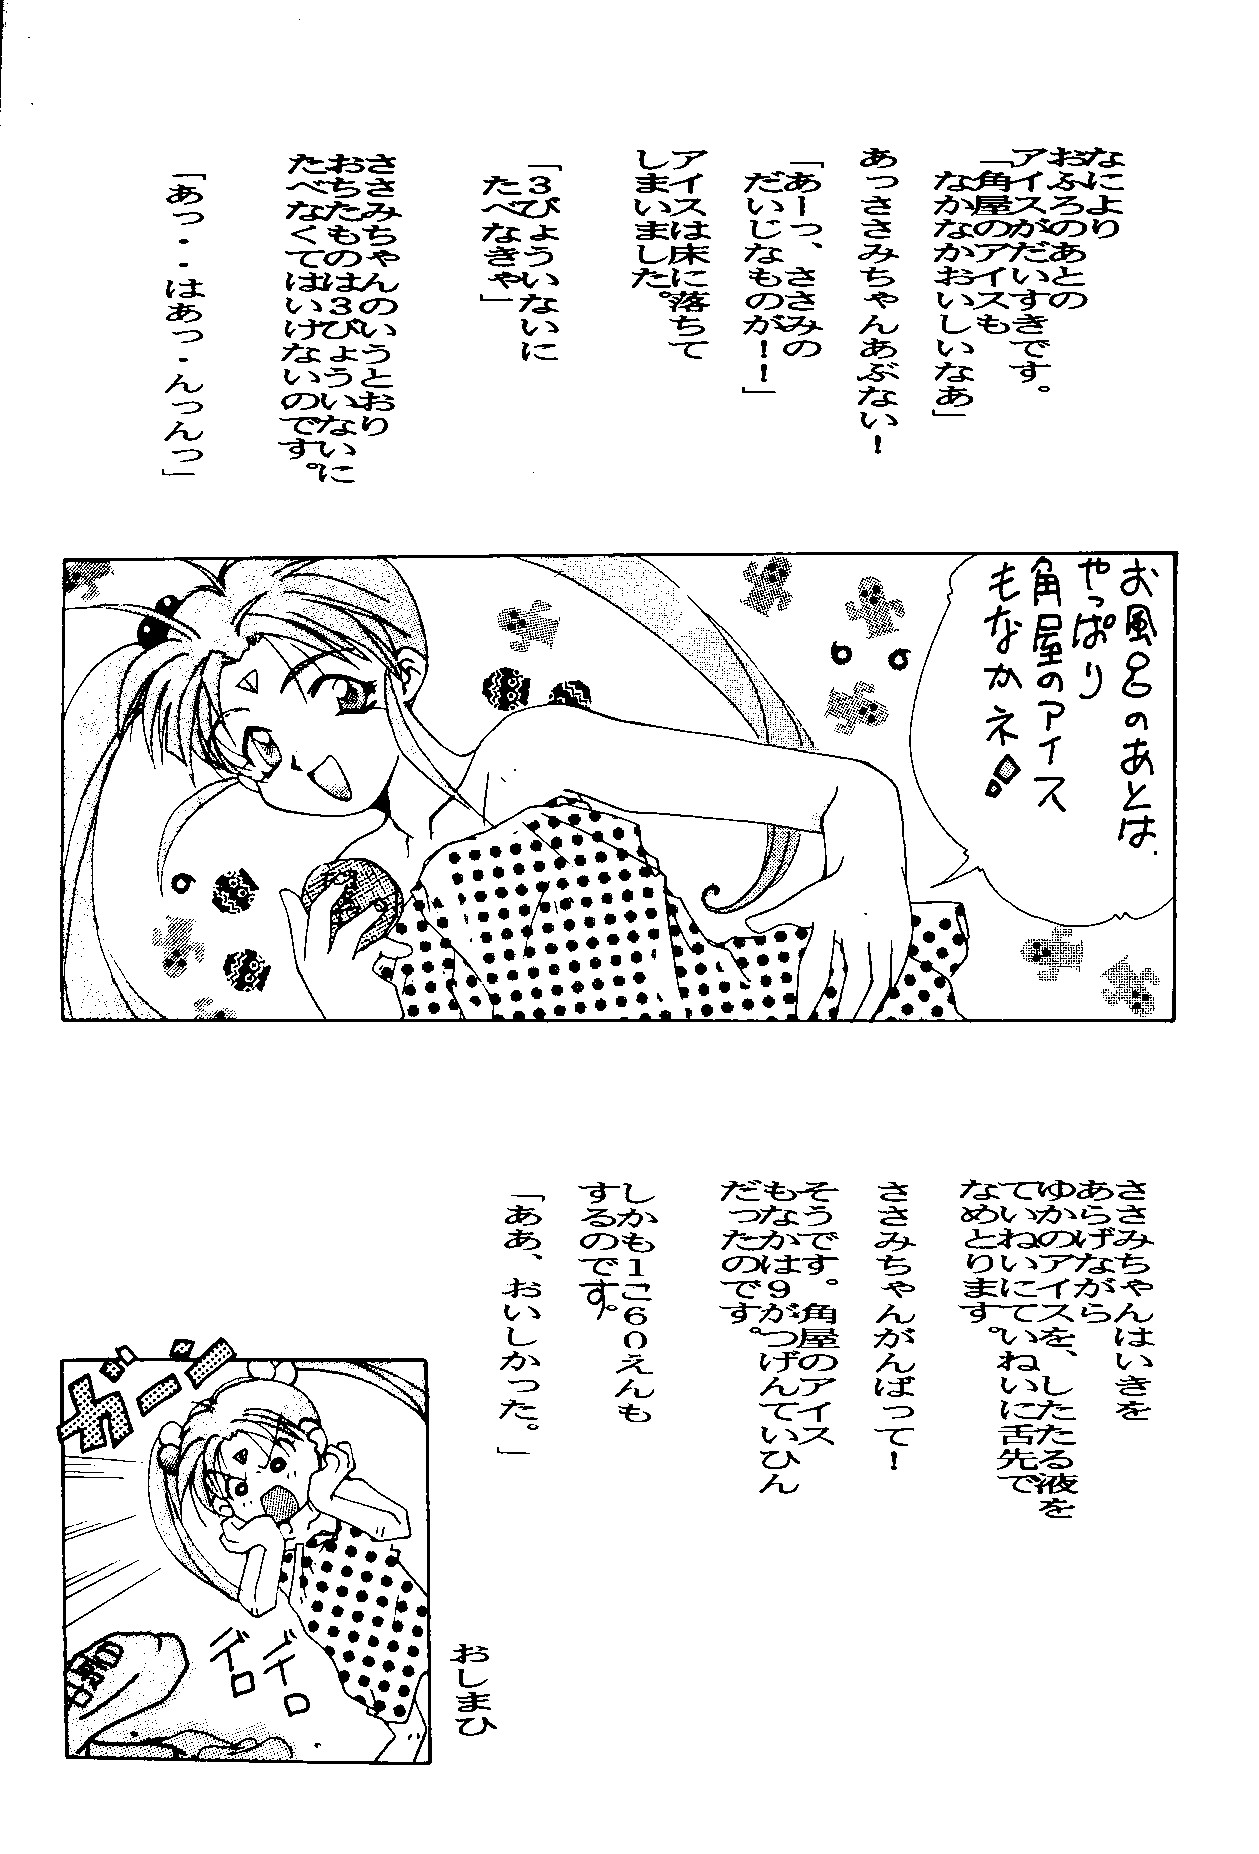 なにより
おふろのあとの
アイスがだいすきです。
「角屋のアイスも
なかなかおいしいなあ」
あっささみちゃんあぶない!
「あーっ、ささみの
だいじなものが!!」
アイスは床に落ちて
しまいました。
「3びょういないに
たべなきゃ」
ささみちゃんのいうとおり
おちたものは3びょういないに
たべなくてはいけないのです。
「あっ・・はあっ・んっんっ」
お風呂のあとは
やっぱり
角屋のアイス
もなかネ!
ささみちゃんはいきを
あらげながら
ゆかのアイスを、したたる液を
ていねいにていねいに舌先で
なめとります。
ささみちゃんがんばって!
そうです。角屋のアイス
もなかは9がつげんていひん
だったのです。
しかも1こ60えんも
するのです。
「ああ、おいしかった。」
ガーン
デロ
デーロ
おしまひ